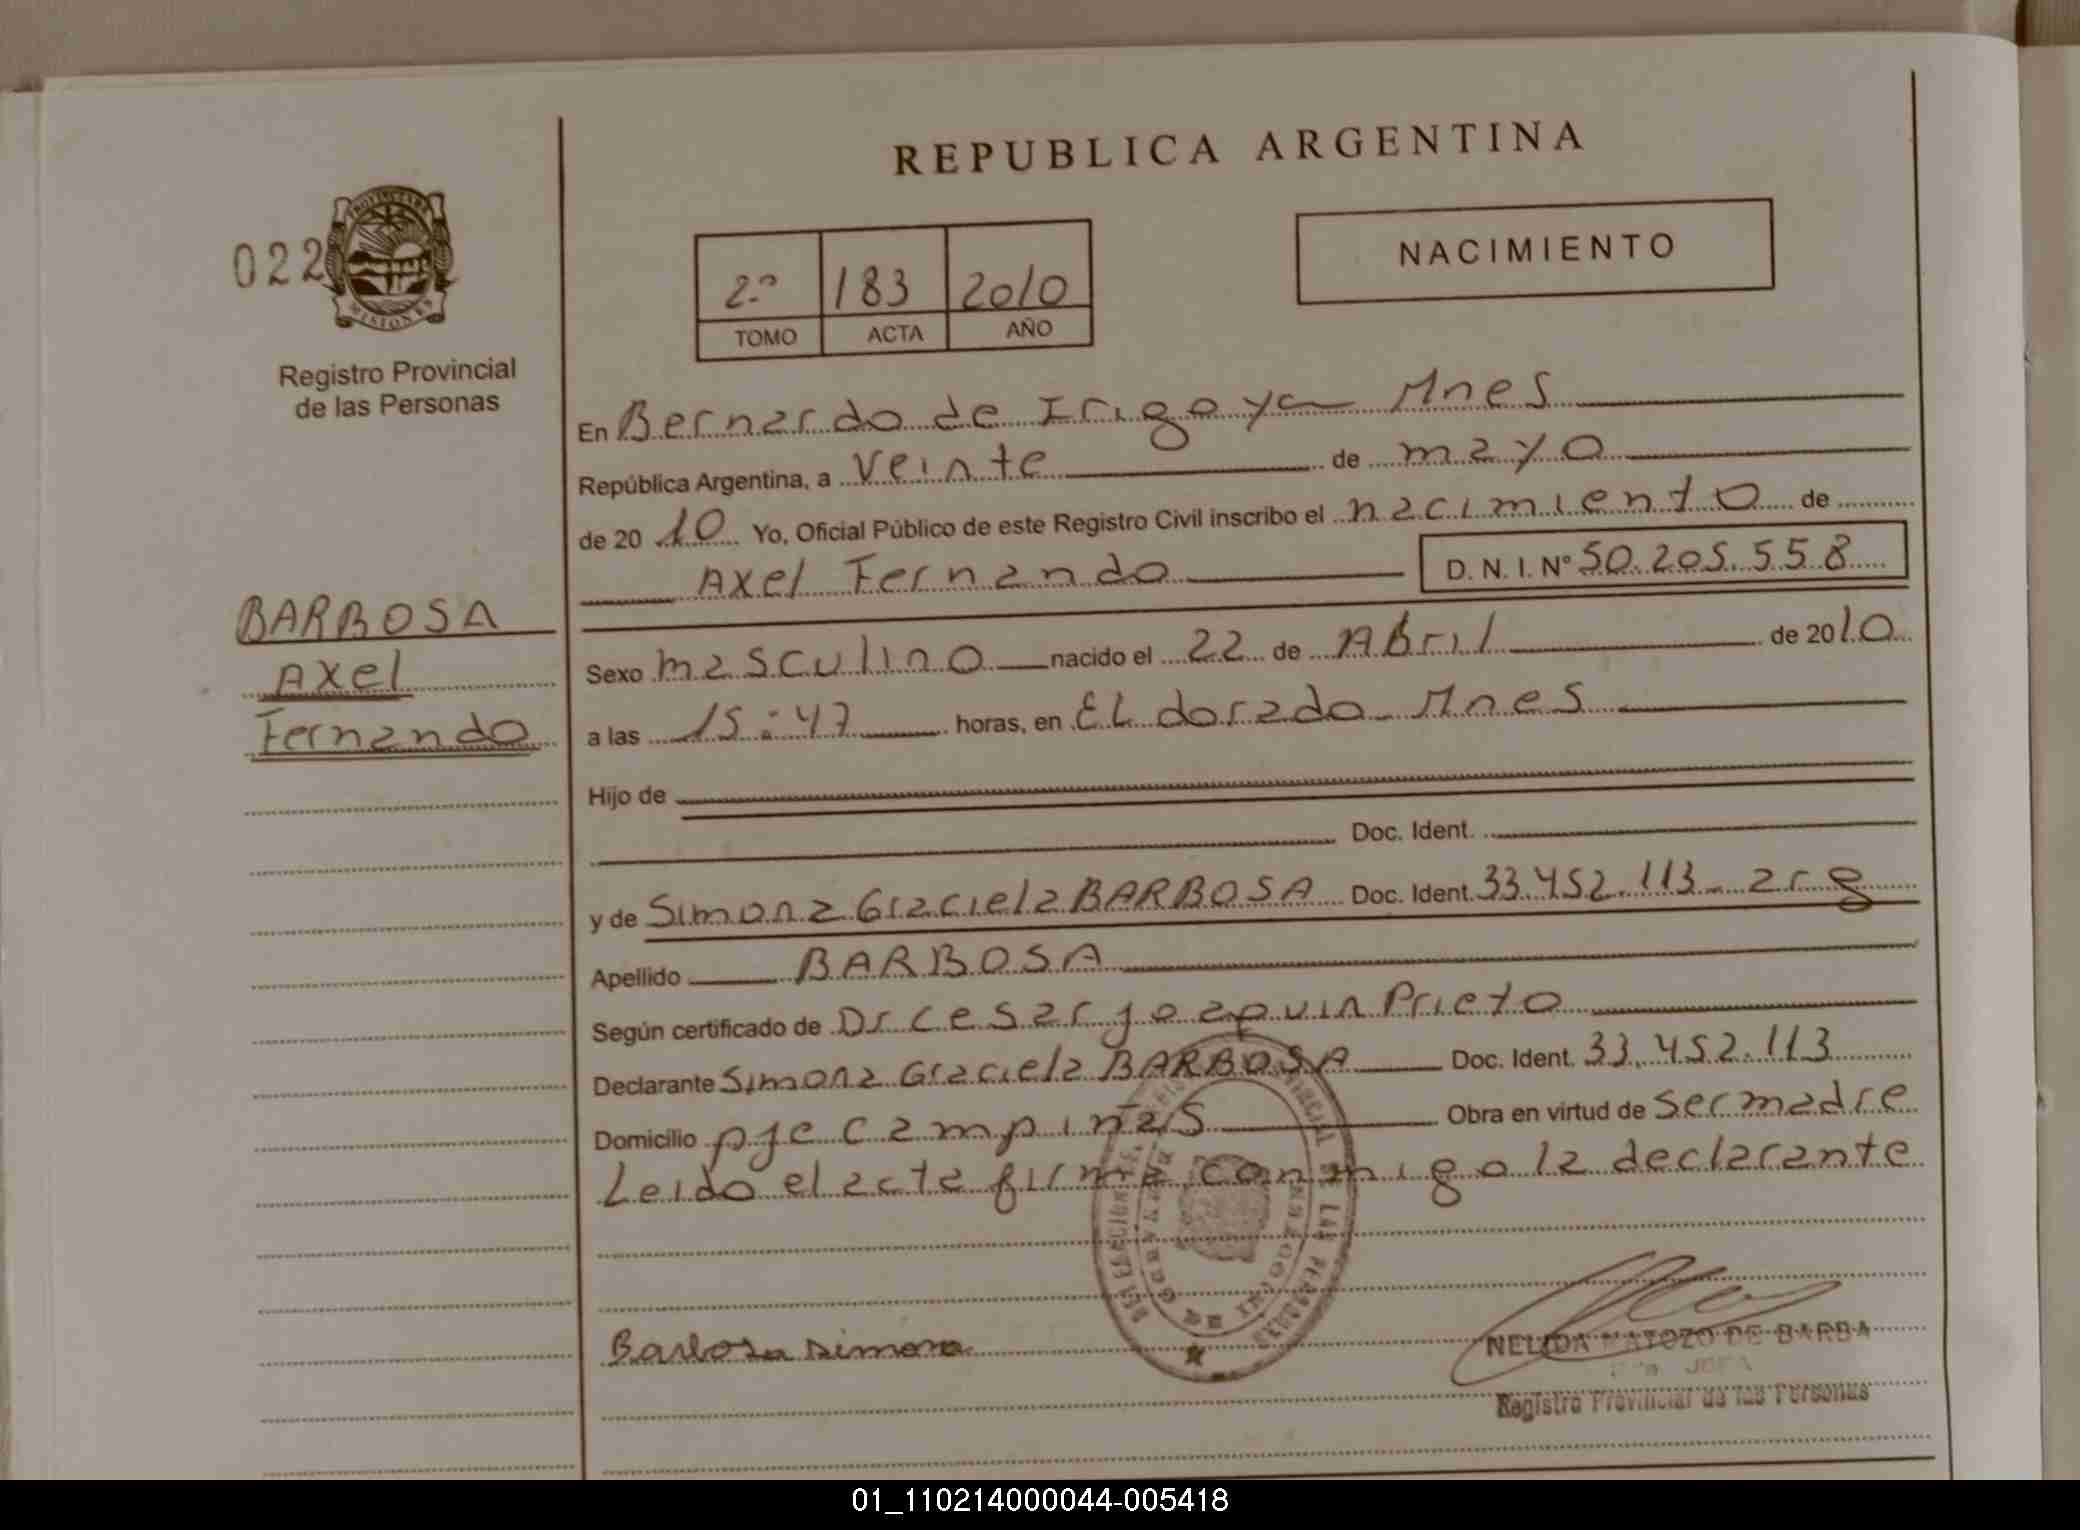 REPUBLICA ARGENTINA
022
PROVINCIA DE
MISIONES
Registro Provincial
de las Personas
2º 183 2010
TOMO ACTA AÑO
NACIMIENTO
En Bernardo de Irigoya Mnes
República Argentina, a veinte de mayo
de 2010 Yo, Oficial Público de este Registro Civil inscribo el nacimiento de
Axel Fernando D.N.I. Nº 50.205.558
BARBOSA
Axel
Fernando
Sexo masculino nacido el 22 de Abril de 2010
a las 15:47 horas, en ELdorado Mnes
Hijo de
Doc. Ident.
y de Simona Graciela BARBOSA Doc. Ident. 33.452.113 - arg
Apellido BARBOSA
Según certificado de Dr Cesar Joaquin Prieto
Declarante Simona Graciela BARBOSA Doc. Ident. 33.452.113
Domicilio pje campiñas Obra en virtud de ser madre
Leido el acta firma conmigo la declarante
Barbosa simona
NELIDA MATOZO DE BARBA
JEFA
Registro Provincial de las Personas
01_110214000044-005418